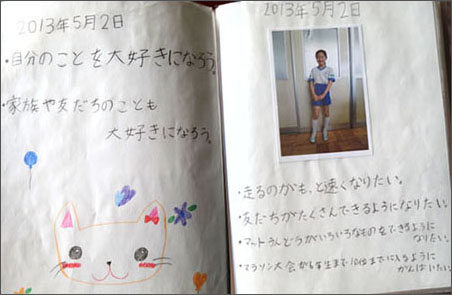 2013年5月2日
・自分のことを大好きになろう。
・家族や友だちのことも
大好きになろう。
2013年5月2日
・走るのがもっと速くなりたい。
・友だちがたくさんできるようになりたい。
・マットうんどうがいろいろなものをできるように
なりたい。
・マラソン大会が6年生まで10位までに入るように
がんばりたい。